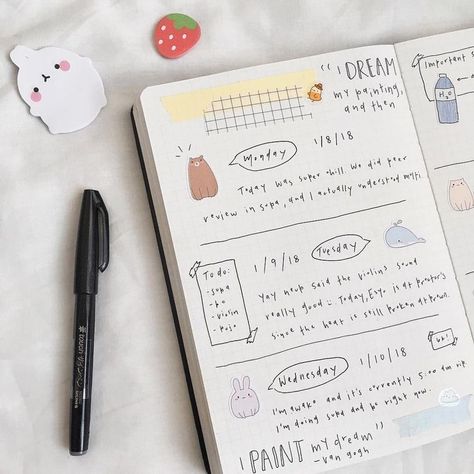 " I DREAM
my painting,
and then
Monday
1/8/18
Today was super chill. We did peer
review in sopa, and I actually understood
To do:
- sopa
- violin
1/9/18
Tuesday
Yay neup said the violins sound
really good :) Today, is at proctor's
since the heat is still broken at
Wednesday
1/10/18
I'm awake and it's currently 5:00 am
I'm doing sopa and right now.
I PAINT my dream "
- van gogh
Important
H2O